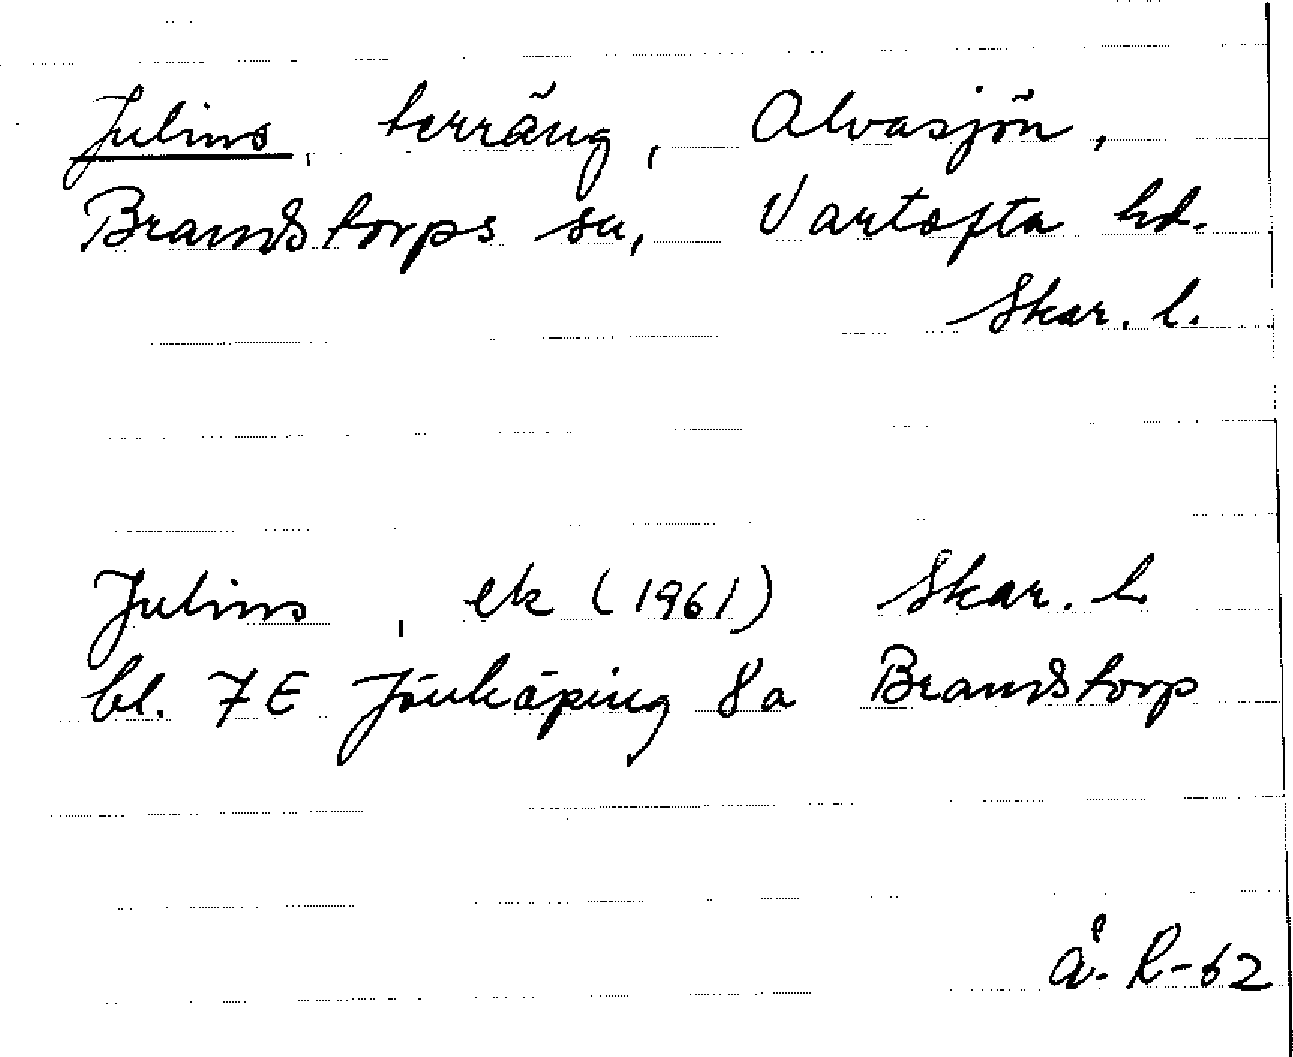 Julius, terräng, Alvasjön,
Brandstorps sn, Vartofta hd.
Skar. l.
Julius, ek (1961) Skar. l.
bl. 7E Jönköping 8a Brandstorp
Å. R-62